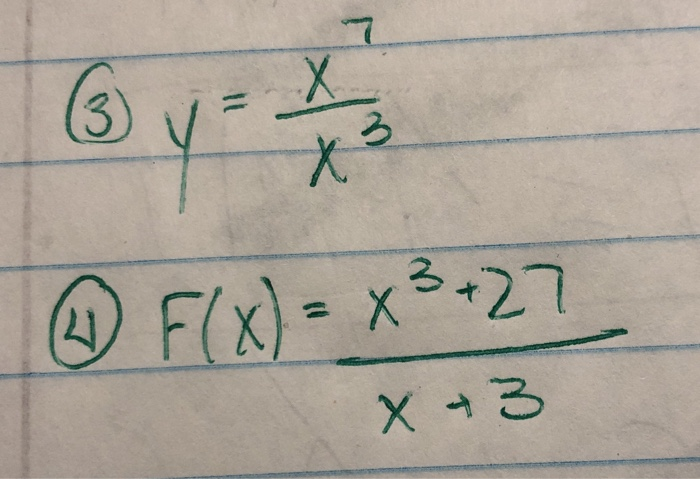 ③ y = x⁷/x³
④ F(x) = x³+27/x+3